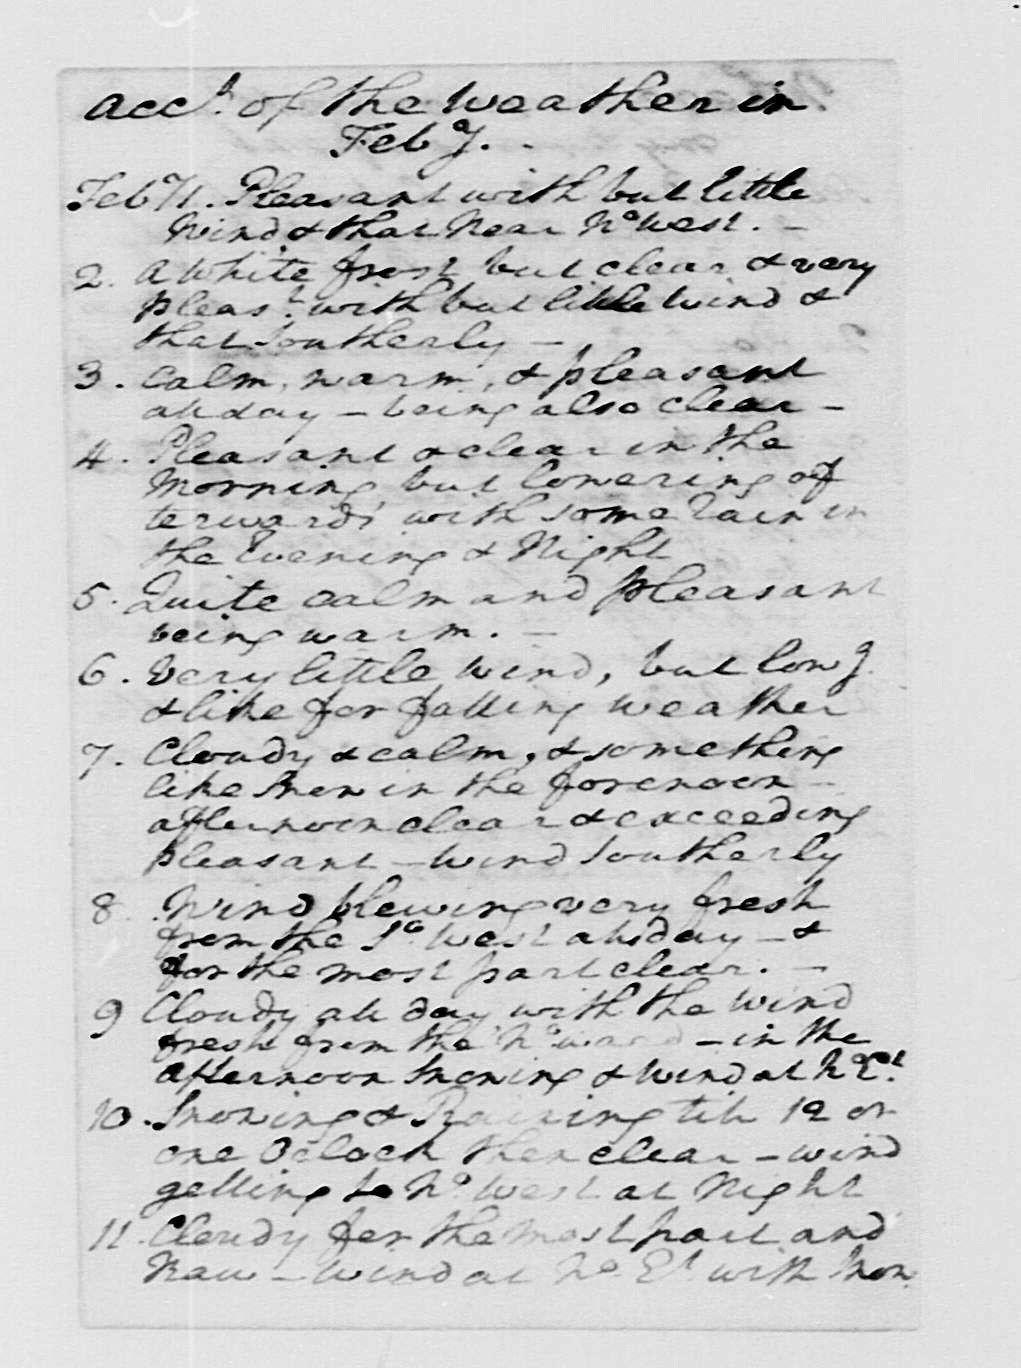 Acct. of the Weather in
Feby. -
Feby 1. Pleasant with but little
Wind & that Near No. West. -
2. A White frost but clear & very
pleast. with but little Wind &
that Southerly -
3. Calm, warm, & pleasant
all day - being also clear -
4. Pleasant & clear in the
Morning but lowering af
terwards with some Rain in
the Evening & Night
5. Quite calm and pleasant
being warm. -
6. Very little Wind, but lowg.
& like for falling Weather
7. Cloudy & calm, & something
like Snow in the forenoon -
afternoon clear & exceeding
pleasant - Wind Southerly
8. Wind blewing very fresh
from the So. West all day - &
for the most part clear. -
9 Cloudy all day with the Wind
fresh from the No. ward - in the
Afternoon Snowing & Wind at No. Et.
10. Snowing & Raining till 12 or
one Oclock then clear - wind
getting to No. West at Night
11. Cloudy for the most part and
Raw - Wind at No. Et. with Snow